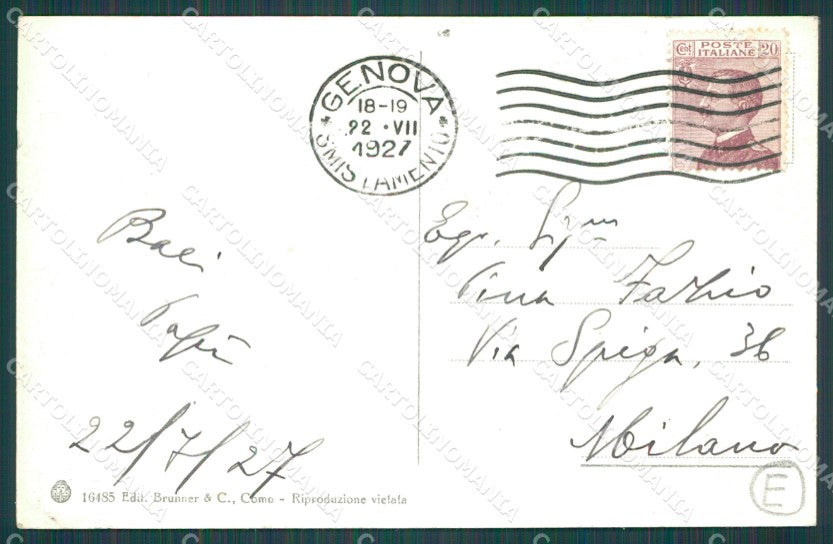 GENOVA
18-19
22 · VII
1927
SMISTAMENTO
Cent POSTE 20
ITALIANE
Baci
Papà
22/7/27
Egr. Sig.na
Pina Fazio
Via Spiga, 36
Milano
E
16485 Edit. Brunner & C., Como - Riproduzione vietata
CARTOLINOMANIA